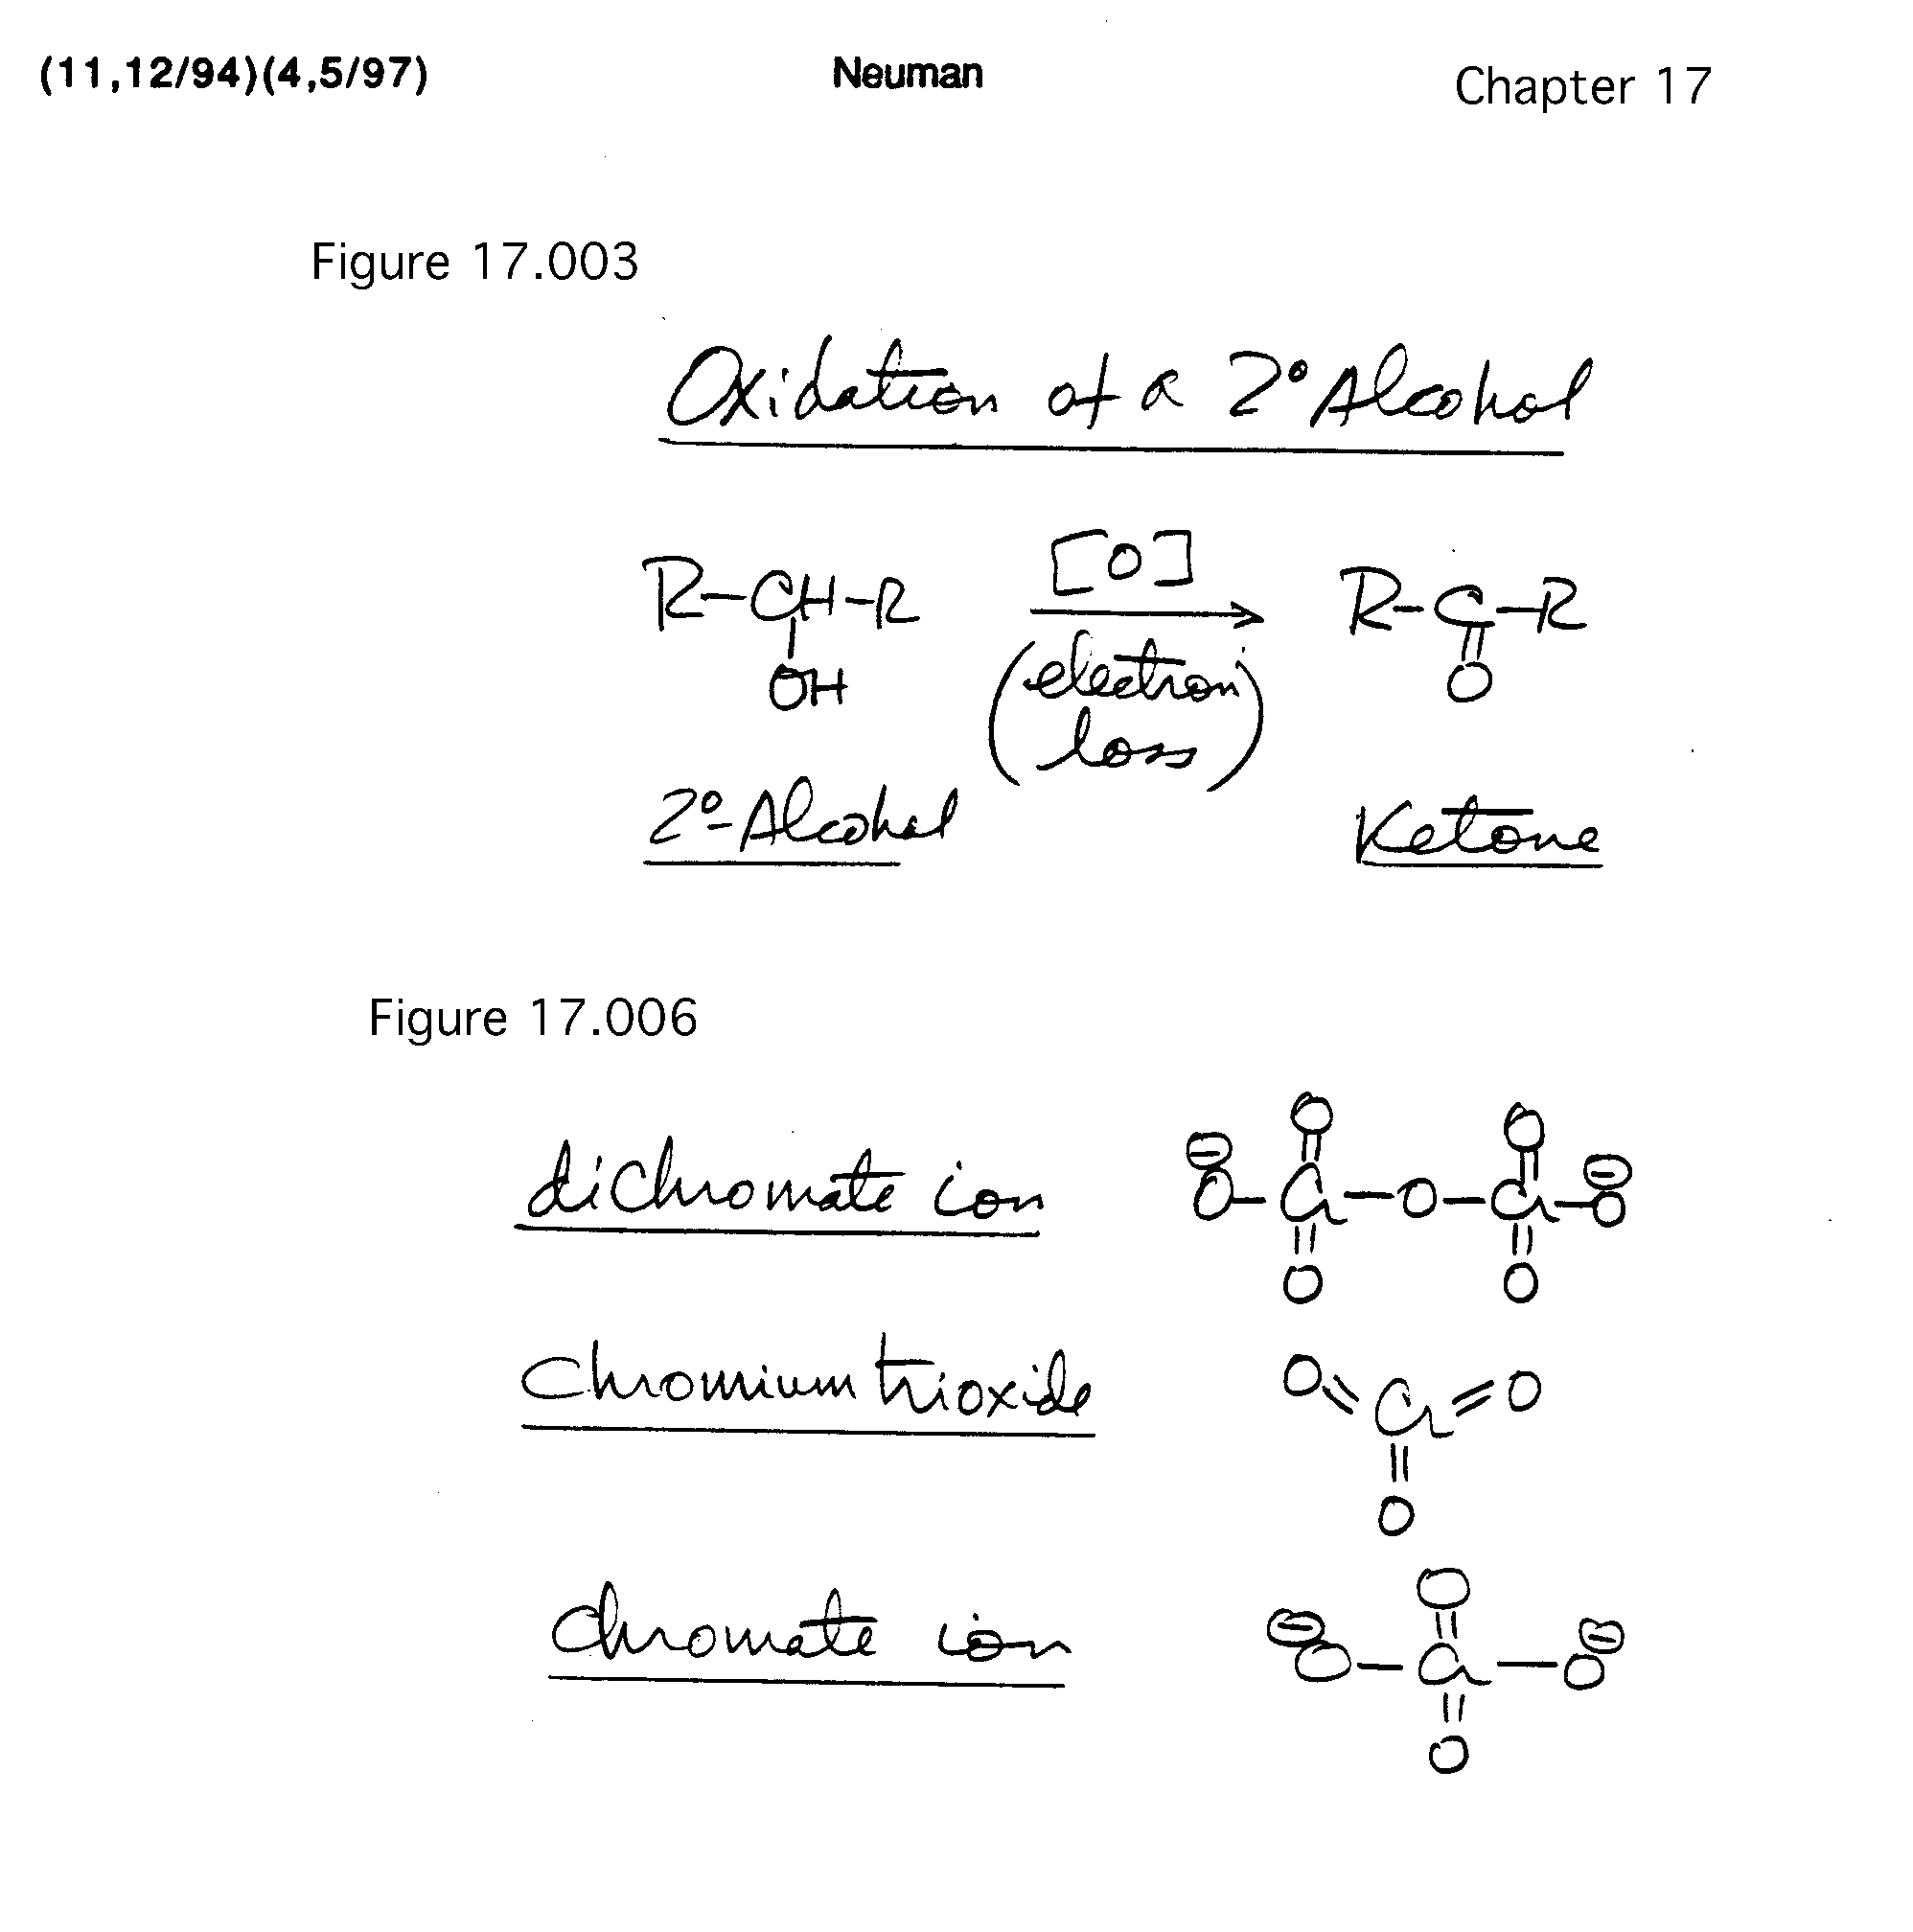 (11,12/94)(4,5/97) Neuman Chapter 17
Figure 17.003
Oxidation of a 2° Alcohol
[O]
R–CH–R R–C–R
OH O
(electron loss)
2°-Alcohol Ketone
Figure 17.006
O O
⊖ ⊖
dichromate ion O–Cr–O–Cr–O
O O
chromium trioxide O=Cr=O
O
O
⊖ ⊖
chromate ion O–Cr–O
O